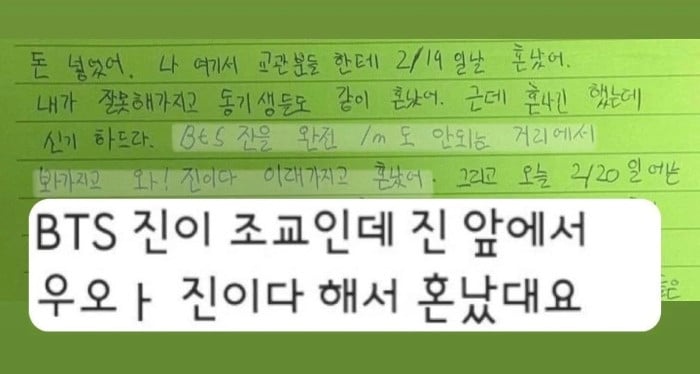 돈 넣었어. 나 여기서 교관분들 한테 2/19 일날 혼났어.
내가 잘못해가지고 동기생들도 같이 혼났어. 근데 혼나긴 했는데
신기 하드라. BtS 진을 완전 1m도 안되는 거리에서
봐가지고 와! 진이다 이래가지고 혼났어. 그리고 오늘 2/20 일에는
BTS 진이 조교인데 진 앞에서
우오ㅏ 진이다 해서 혼났대요